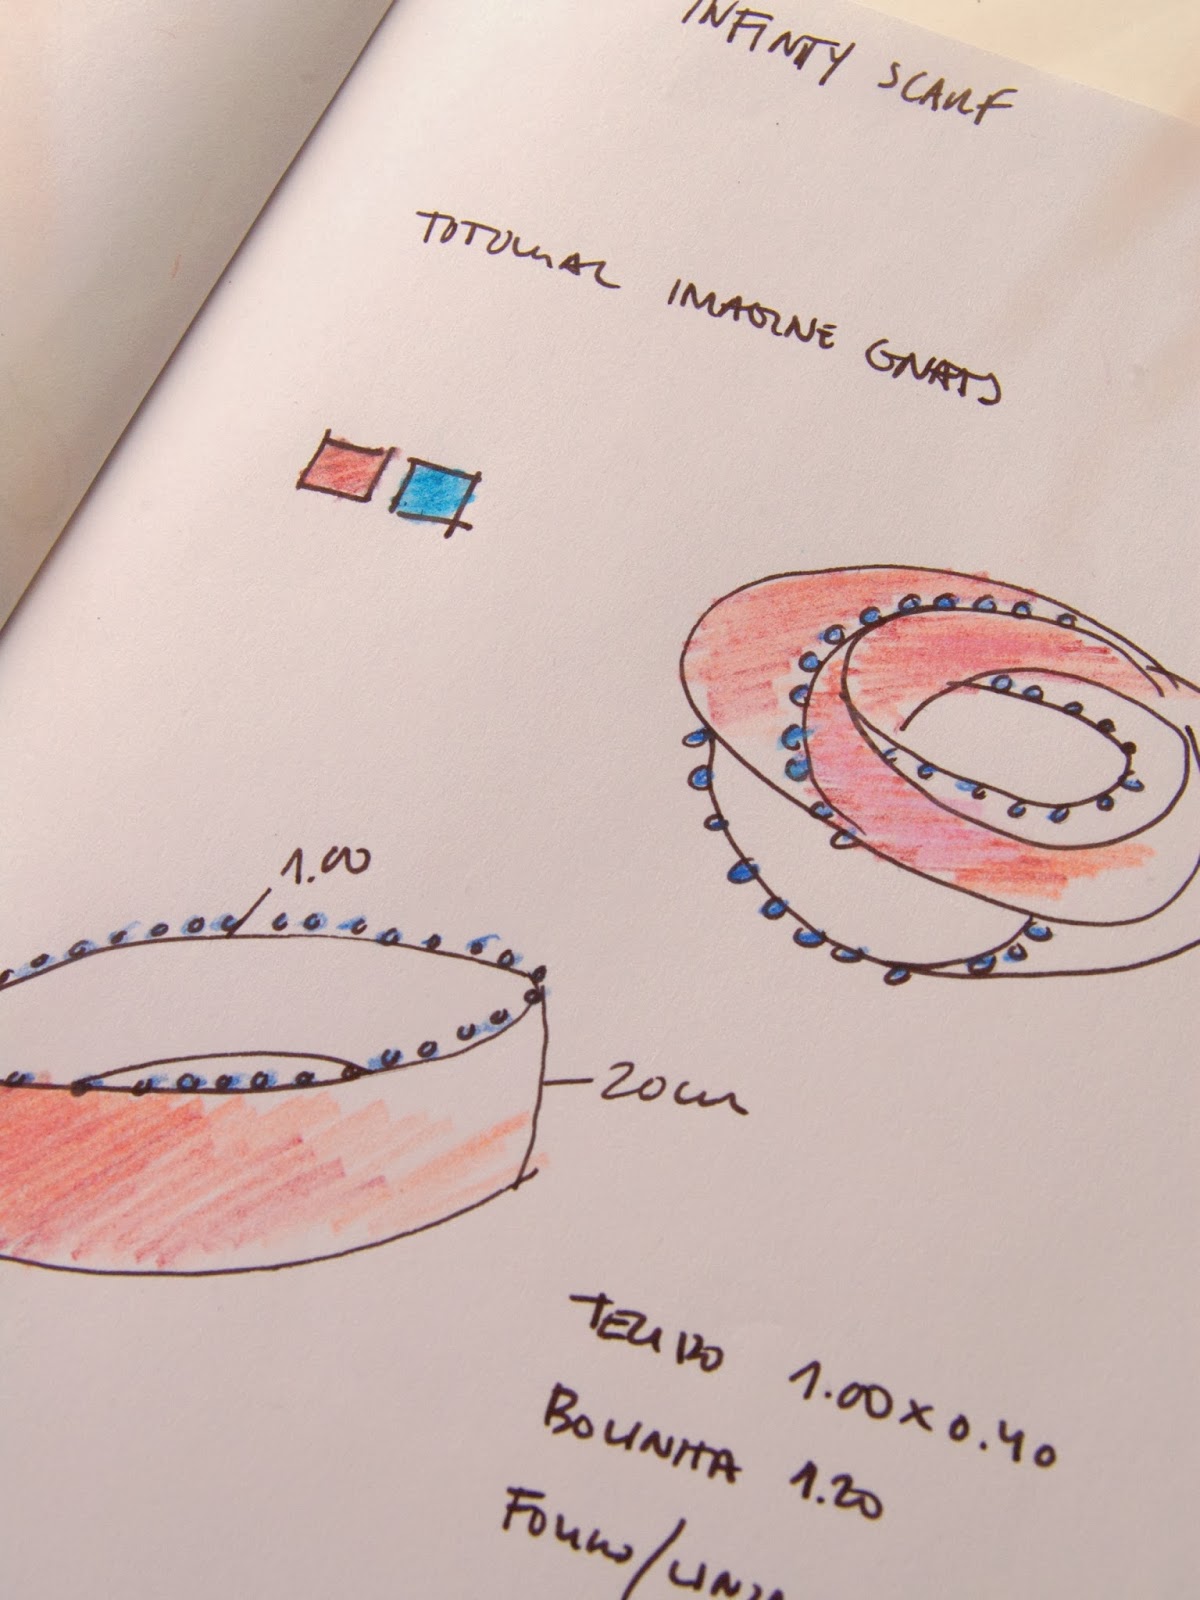 INFINITY SCARF
TUTORIAL IMAGINE GNATS
1.00
20cm
TECIDO 1.00 x 0.40
BOLINHA 1.20
FORRO/LINHA